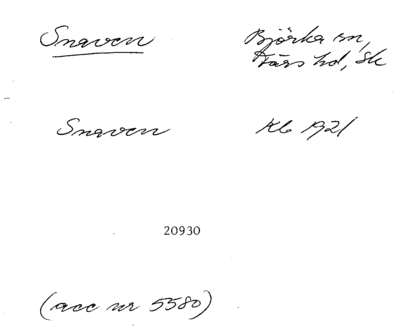 Snaven Björka sn,
Färs hd, Sk
Snaven Kb 1921
20930
(acc nr 5580)